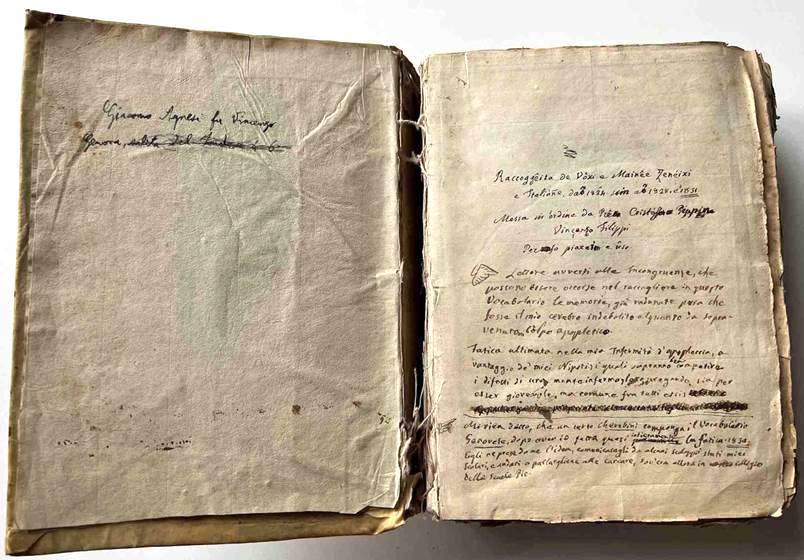 Giacomo Agnesi fu Vincenzo
Genova, salita del
Raccoggeita de Vôxi e Mainëe Zeneixi
e Italiañe, da 1824 sein a 1828. e 1831.
Missa in ordine da Cristöffa Peppin
Vincenzo Filippi
Per so piaxeim e uso
Lettore avverti alle Incongruenze, che
possono essere occorse nel raccogliere in questo
Vocabolario le memorie, già radunate pria che
fosse il mio cerebro indebolito alquanto da sopra-
venuto colpo apopletico.
Fatica ultimata nella mia Infermità d'apoplessia, a
vantaggio de' miei Nipoti: i quali sapranno compatire
i difetti di una mente inferma, pregando, sia per
esser giovevole, ma comune fra tutti essi
Mi vien detto, che un certo Cherubini componga il Vocabolario
Genovese, dopo aver io fatta quasi intieramente la fatica. 1830.
Egli ne prese da me l'idea, comunicatagli da alcuni stati miei
Scolari, e andati a passare alle Carcare, dov'era allora in Collegio
delle Scuole Pie